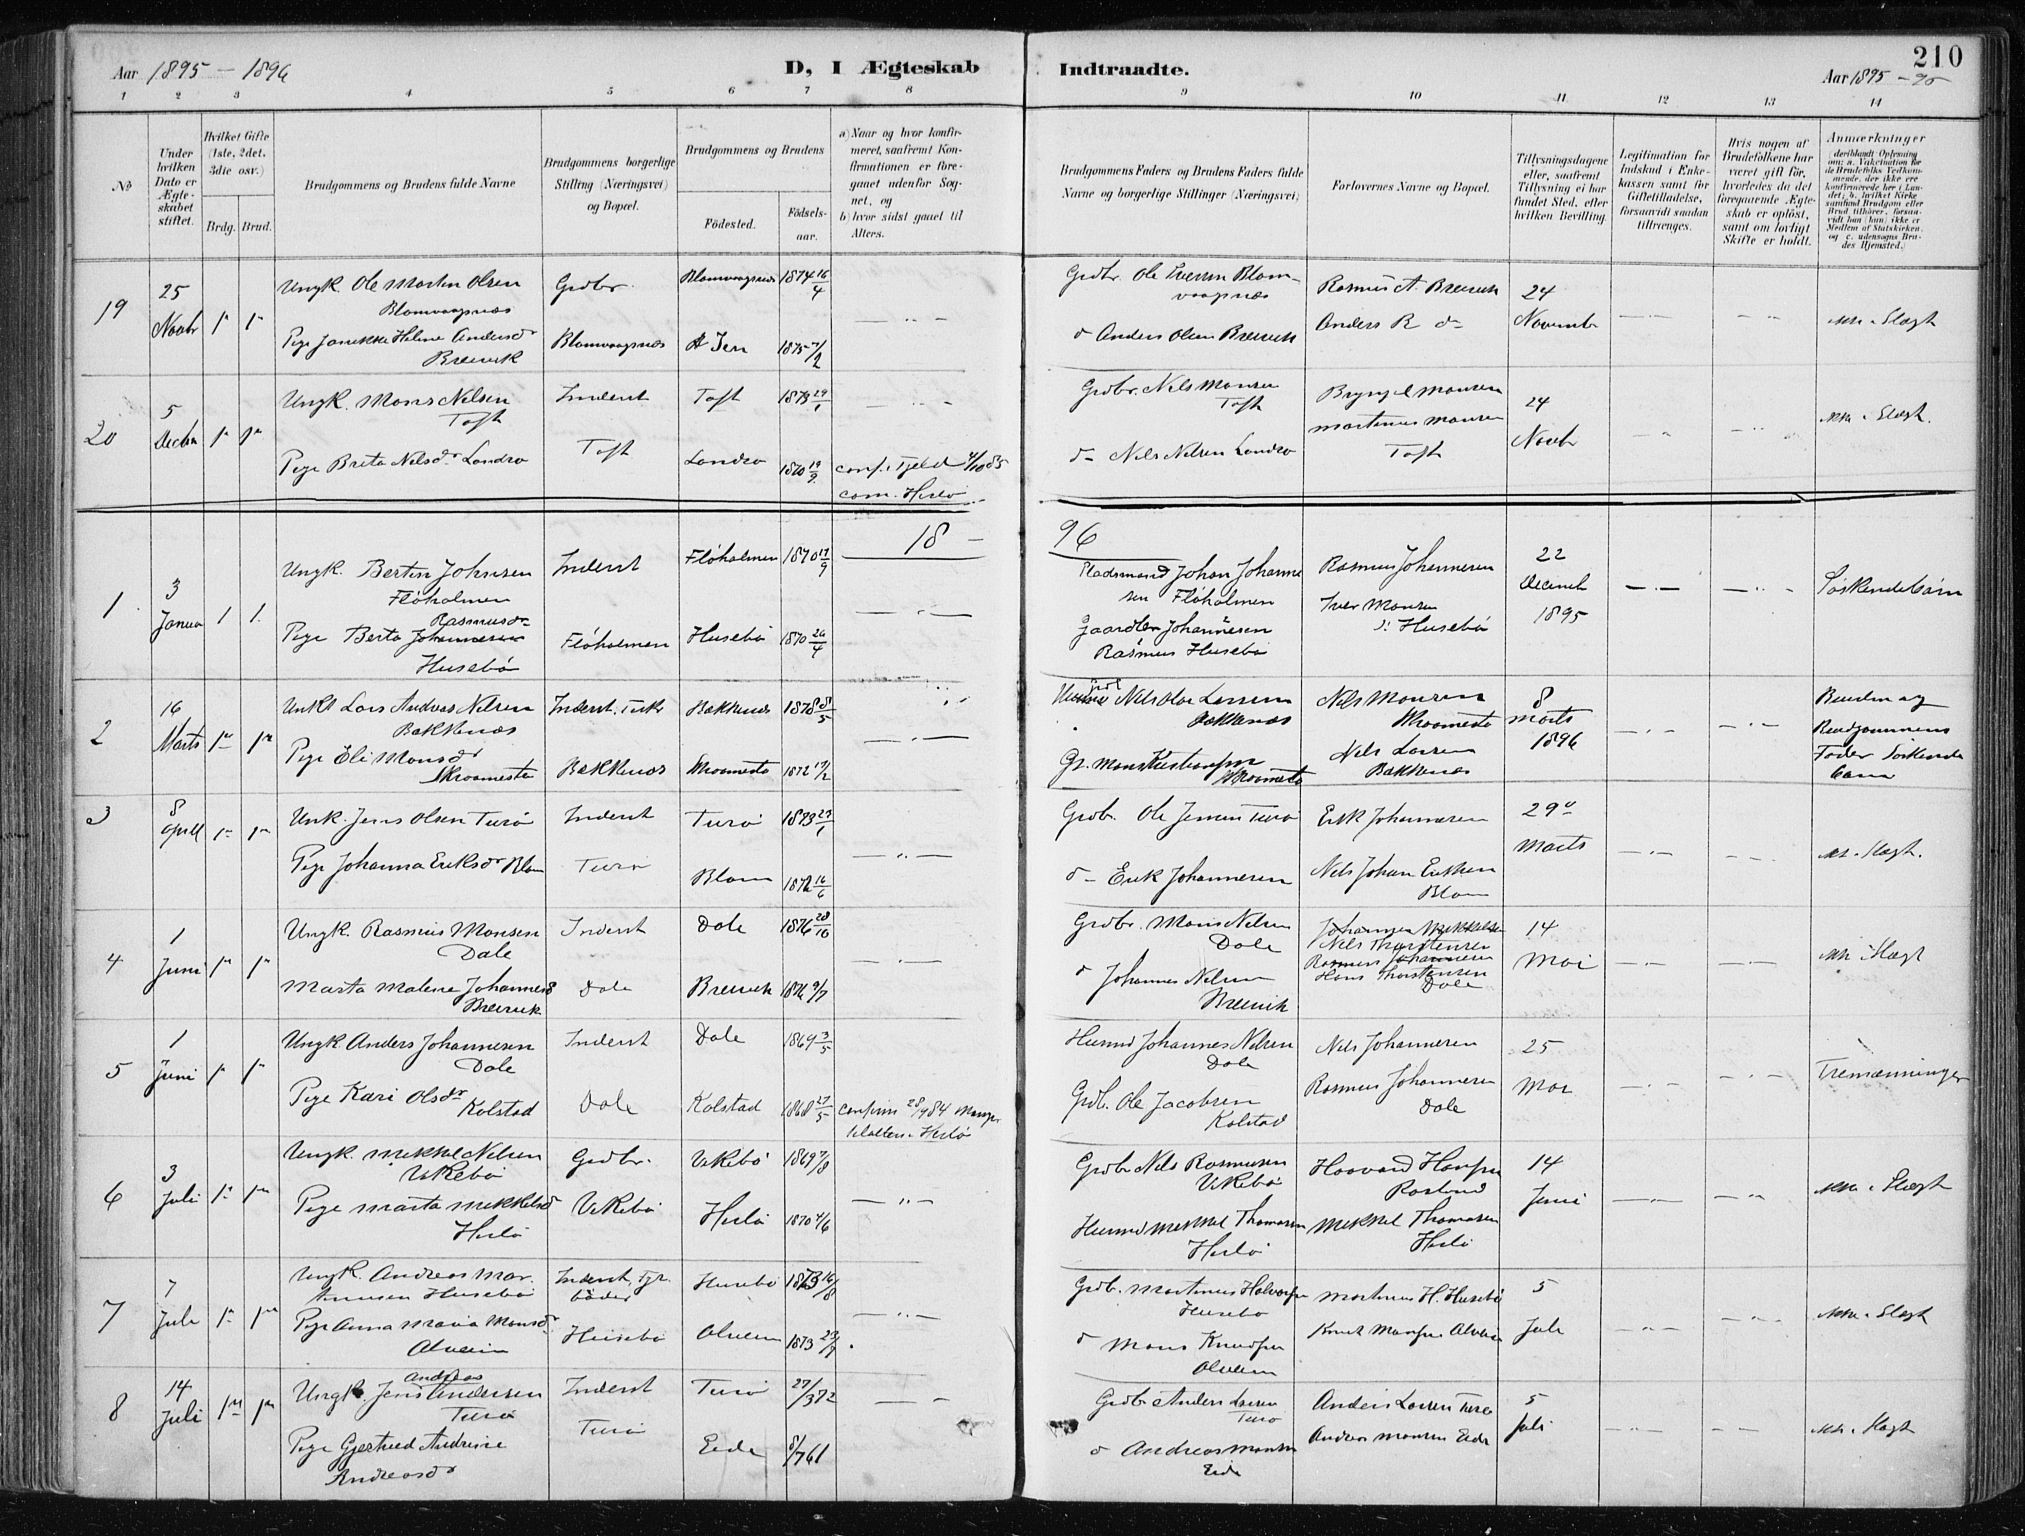 210
Aar 1895 - 1896
D, I Ægteskab
Indtraadte.
Aar 1895 -
1 2 3 4 5 6 7 8
9 10 11 12 13 14
No
Under hvilken Dato er Ægteskabet stiftet.
Hvilket Gifte (1ste, 2det, 3die osv.)
Brdg. Brud.
Brudgommens og Brudens fulde Navne
Brudgommens borgerlige Stilling (Næringsvei) og Bopæl.
Brudgommens og Brudens
Fødested.
Fødselsaar.
a) Naar og hvor konfirmeret, saafremt Konfirmationen er foregaaet udenfor Sognet, og
b) hvor sidst gaaet til Alters.
Brudgommens Faders og Brudens Faders fulde Navne og borgerlige Stillinger (Næringsvei)
Forlovernes Navne og Bopæl.
Tillysningsdagene eller, saafremt Tillysning ei har fundet Sted, efter hvilken Bevilling.
Legitimation for Indskud i Enkekassen samt for Giftetilladelse, forsaavidt saadan tiltrænges.
Hvis nogen af Brudefolkene har været gift før, hvorledes da det foregaaende Ægteskab er opløst, samt om lovligt Skifte er holdt.
Anmærkninger
(deriblandt Oplysning om: a. Vakcination for de Brudefolks Vedkommende, der ikke ere konfirmerede her i Landet; b. hvilket Kirkesamfund Brudgom eller Brud tilhører, forsaavidt han (hun) ikke er Medlem af Statskirken, og c. udensogns Brudes Hjemsted.)
19
25 Novbr
Ungk. Ole Martin Olsen
Blomvaagnæs
Grdbr.
Blomvaagnæs
1874 16/4
Pige Helene Andersdr
Breivik
Blomvaagnæs
1875
Grdbr. Ole Iversen Blomvaagnæs
Rasmus A. Breivik
24
ikke i Slægt
Anders Olsen Breivik
Anders R
November
20
5 Decbr
Ungk. Mons Nelsen
Toft
Inderst
Toft
1873 29/1
Pige Brita Nelsdr Landro
Toft
Landro
1870 19/9
conf. i Fjeld 4/10 85
com. Herlø
Grdbr. Nels Monsen
Toft
Brynjel Monsen
24
ikke i Slægt.
Nels Nelsen Landro
Martinus Monsen
Toft
Novbr
18 - 96
1
3 Januar 1 1.
Ungk. Bertin Johnsen
Fløholmen
Inderst
Fløholmen
1870 17/9
Rasmusdr
Pige Berta Johannesen
Husebø
Fløholmen
Husebø
1870 26/4
Pladsmand Johan Johannesen Fløholmen
Rasmus Johannesen
22 Decemb 1895
Søskendebørn
Gaardbr Johannesen
Rasmus Husebø
Iver Monsen
Husebø
2
16 Marts
Lars Andreas Nelsen
Bakkenæs
Inderst.
Bakkenæs
Pige Eli Monsdr
Skraamestø
Bakkenæs
Skraamestø
1872
Nels Olai Larsen
Bakkenæs
Nels Monsen
Skraamestø
8 Marts 1896
Bruden og
Brudgommens
Fader Søskendebarn
Gr. Mons Kristiansen
Skraamestø
Nels Larsen
Bakkenæs
3
8 April
Unk. Jens Olsen Turø
Inderst
Turø
1873 23/1
Pige Johanna Eriksdr Blom
Turø
Blom
1872 16/6
Grdb. Ole Jensen Turø
Erik Johannesen
29 Marts
ikke i Slægt.
Erik Johannesen
Nels Johan Eriksen
Blom
4
1 Juni
Ungk. Rasmus Monsen
Dale
Inderst
Dale
1876 28/10
Marta Malene Johannesd
Breivik
Dale
Breivik
1876 9/7
Grdbr. Mons Nelsen
Dale
Johannes Mikkelsen
Nils Thorstensen
Rasmus Johannesen
Hans Thorstensen
Dale
14 Mai
ikke i Slægt
Johannes Nelsen
Breivik
5
1 Juni
Ungk. Anders Johannesen
Dale
Inderst
Dale
1869 3/5
Pige Kari Olsdr
Kolstad
Dale
Kolstad
1868 27/5
confirm 28/9 84 Manger
Herlø
Johannes Nelsen
Dale
Nels Johannesen
25 Mai
Tremænninger
Grdb. Ole Jacobsen
Kolstad
Rasmus Johannesen
Dale
6
3 Juli
Ungk. Mikkel Nelsen
Vikebø
Grdbr.
Vikebø
1869 7/8
Pige Marta Mikkelsd
Herlø
Vikebø
Herlø
1870 4/6
Grdbr Nels Rasmusen
Vikebø
Haavard Hansen
Rosland
14 Juni
ikke i Slægt
Mikkel Thomasen
Herlø
Mikkel Thomasen
Herlø
7
7 Juli
Ungk. Andreas Martinusen Husebø
Inderst,
Husebø
1873 16/8
Pige Anna Maria Monsdr
Alveim
Husebø
Alveim
1873
Grdb. Martinus Halvorsen
Husebø
Martinus H. Husebø
5 Juli
ikke i Slægt
Mons Knudsen
Alveim
Knut Monsen Alveim
8
14 Juli
Andreas
Ungk. Jens Andersen
Turø
Inderst
Turø
27/3 72
Pige Gjertrud Andrine
Andreasdr
Turø
Eide
8/7 61
Grdb Anders Larsen
Turø
Anders Larsen Turø
5 Juli
ikke i Slægt
Andreas Monsen
Eide
Andreas Monsen Eide